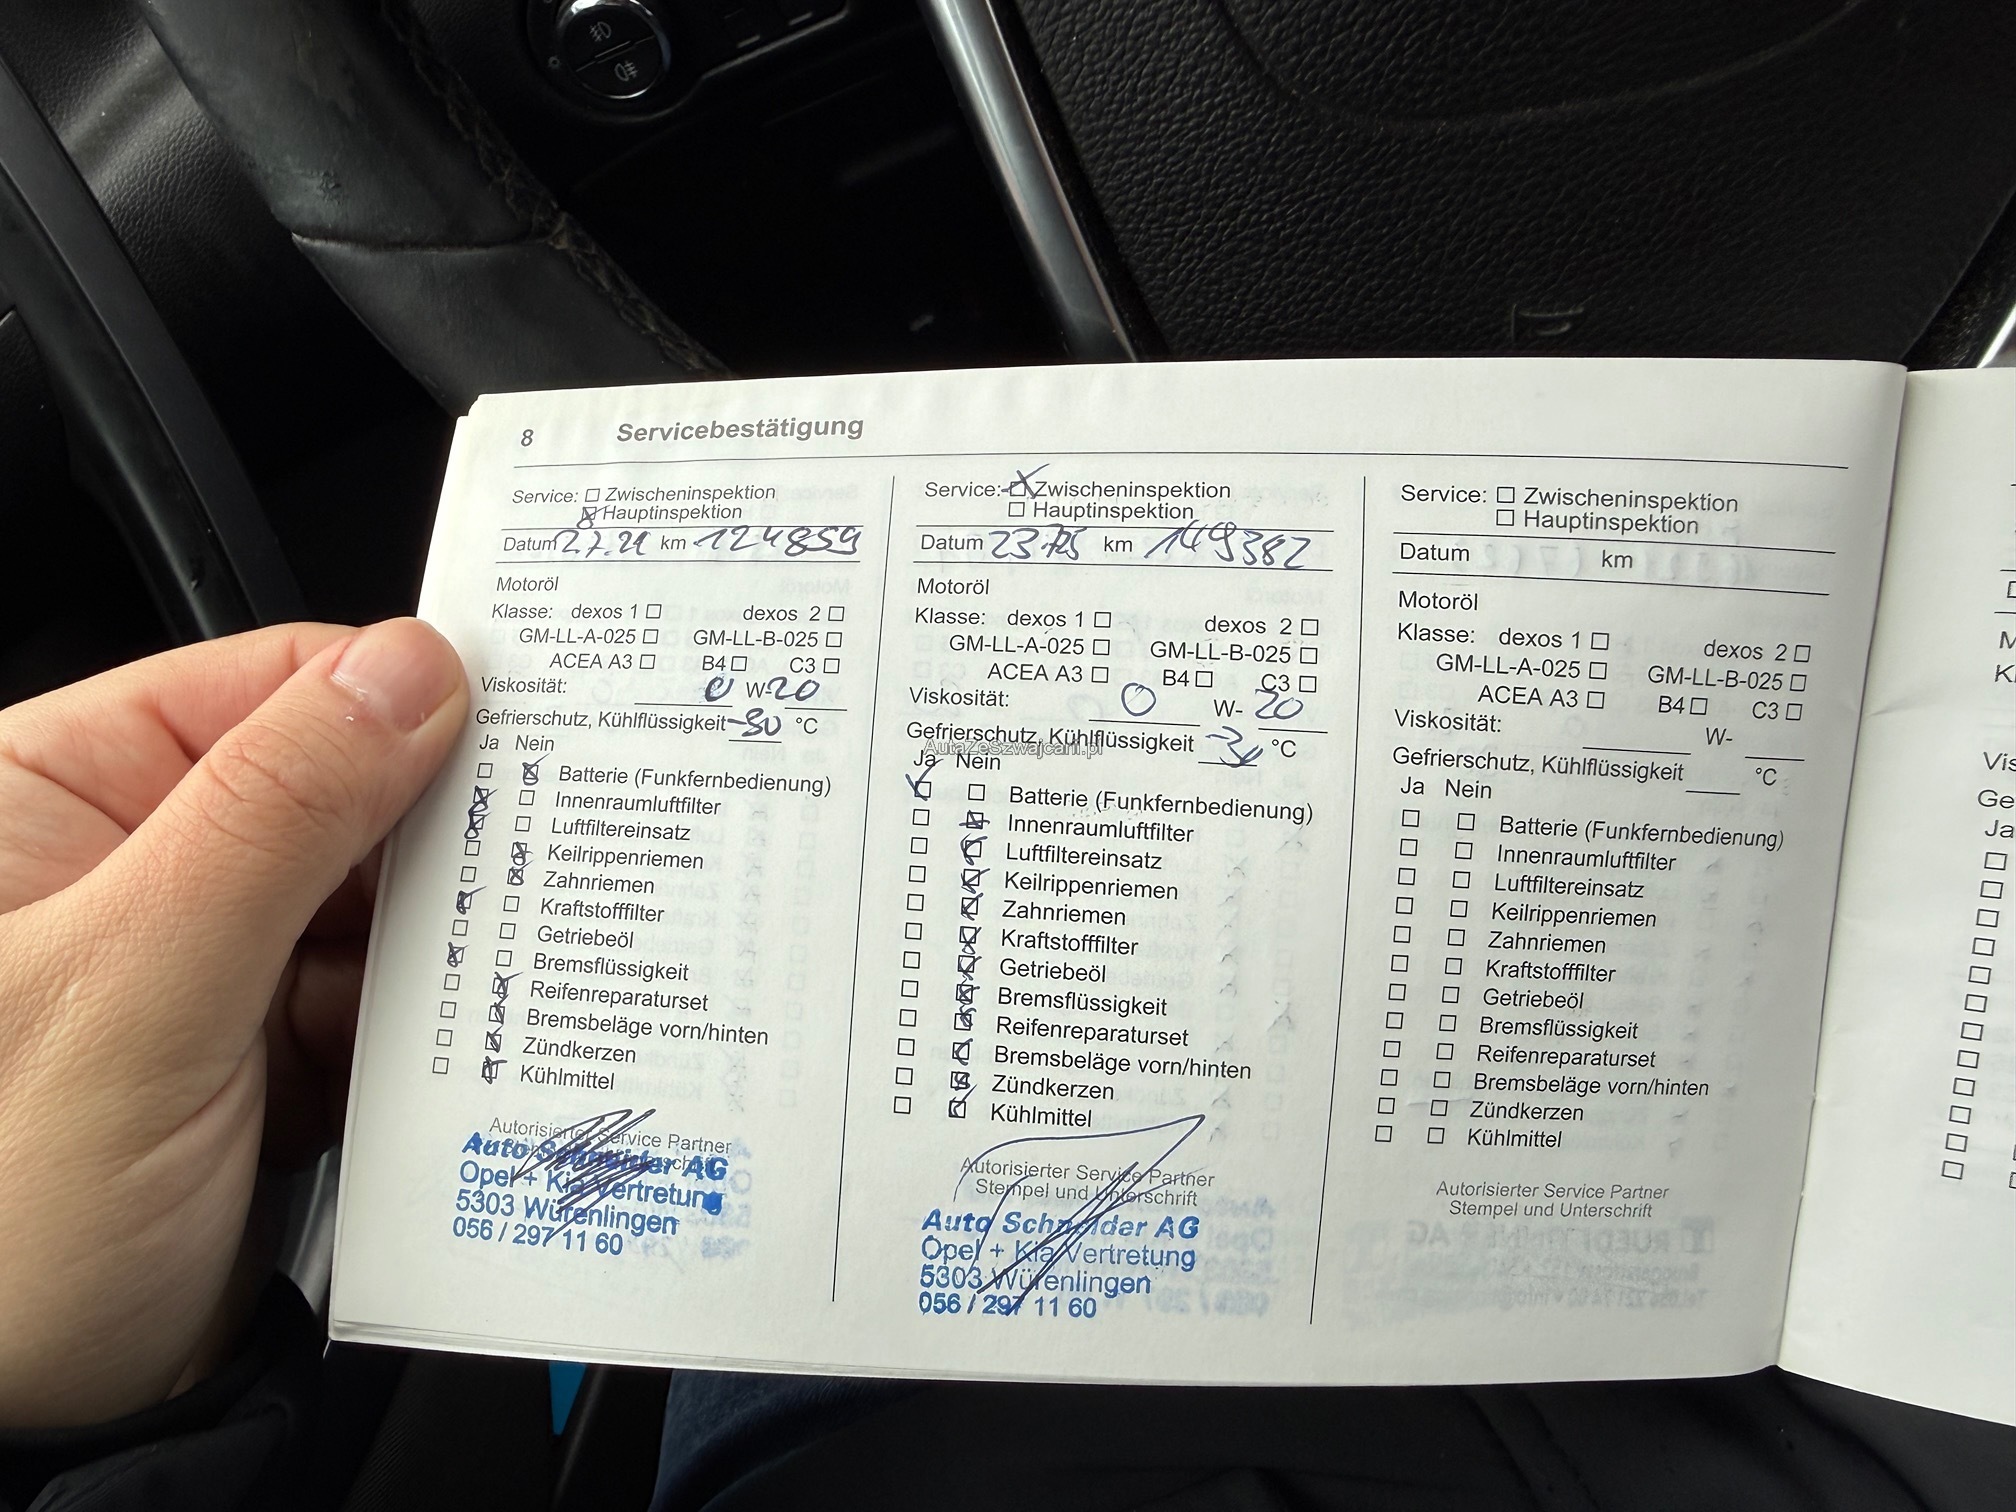 8 Servicebestätigung
Service: Zwischeninspektion
Hauptinspektion
Datum 27.21 km 124859
Motoröl
Klasse: dexos 1 dexos 2
GM-LL-A-025 GM-LL-B-025
ACEA A3 B4 C3
Viskosität: 0 W-20
Gefrierschutz, Kühlflüssigkeit -30 °C
Ja Nein
Batterie (Funkfernbedienung)
Innenraumluftfilter
Luftfiltereinsatz
Keilrippenriemen
Zahnriemen
Kraftstofffilter
Getriebeöl
Bremsflüssigkeit
Reifenreparaturset
Bremsbeläge vorn/hinten
Zündkerzen
Kühlmittel
Autorisierter Service Partner
Auto Schneider AG
Opel + Kia Vertretung
5303 Würenlingen
056 / 297 11 60
Service: Zwischeninspektion
Hauptinspektion
Datum 23. km 149382
Motoröl
Klasse: dexos 1 dexos 2
GM-LL-A-025 GM-LL-B-025
ACEA A3 B4 C3
Viskosität: 0 W- 20
Gefrierschutz, Kühlflüssigkeit -30 °C
AutaZeSzwajcarii.pl
Ja Nein
Batterie (Funkfernbedienung)
Innenraumluftfilter
Luftfiltereinsatz
Keilrippenriemen
Zahnriemen
Kraftstofffilter
Getriebeöl
Bremsflüssigkeit
Reifenreparaturset
Bremsbeläge vorn/hinten
Zündkerzen
Kühlmittel
Autorisierter Service Partner
Stempel und Unterschrift
Auto Schneider AG
Opel + Kia Vertretung
5303 Würenlingen
056 / 297 11 60
Service: Zwischeninspektion
Hauptinspektion
Datum km
Motoröl
Klasse: dexos 1 dexos 2
GM-LL-A-025 GM-LL-B-025
ACEA A3 B4 C3
Viskosität: W-
Gefrierschutz, Kühlflüssigkeit °C
Ja Nein
Batterie (Funkfernbedienung)
Innenraumluftfilter
Luftfiltereinsatz
Keilrippenriemen
Zahnriemen
Kraftstofffilter
Getriebeöl
Bremsflüssigkeit
Reifenreparaturset
Bremsbeläge vorn/hinten
Zündkerzen
Kühlmittel
Autorisierter Service Partner
Stempel und Unterschrift
Ge
Ja